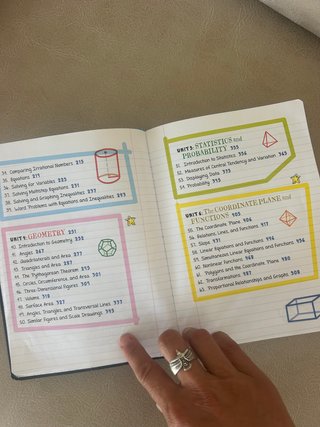 34. Comparing Irrational Numbers 215
35. Equations 219
36. Solving for Variables 223
37. Solving Multistep Equations 231
38. Solving and Graphing Inequalities 237
39. Word Problems with Equations and Inequalities 243
UNIT 4: GEOMETRY 251
40. Introduction to Geometry 252
41. Angles 267
42. Quadrilaterals and Area 277
43. Triangles and Area 287
44. The Pythagorean Theorem 293
45. Circles, Circumference, and Area 301
46. Three-Dimensional Figures 309
47. Volume 318
48. Surface Area 327
49. Angles, Triangles, and Transversal Lines 337
50. Similar Figures and Scale Drawings 345
UNIT 5: STATISTICS and
PROBABILITY 355
51. Introduction to Statistics 356
52. Measures of Central Tendency and Variation 365
53. Displaying Data 375
54. Probability 395
UNIT 6: The COORDINATE PLANE and
FUNCTIONS 405
55. The Coordinate Plane 406
56. Relations, Lines, and Functions 417
57. Slope 431
58. Linear Equations and Functions 446
59. Simultaneous Linear Equations and Functions 456
60. Nonlinear Functions 468
61. Polygons and the Coordinate Plane 480
62. Transformations 487
63. Proportional Relationships and Graphs 508